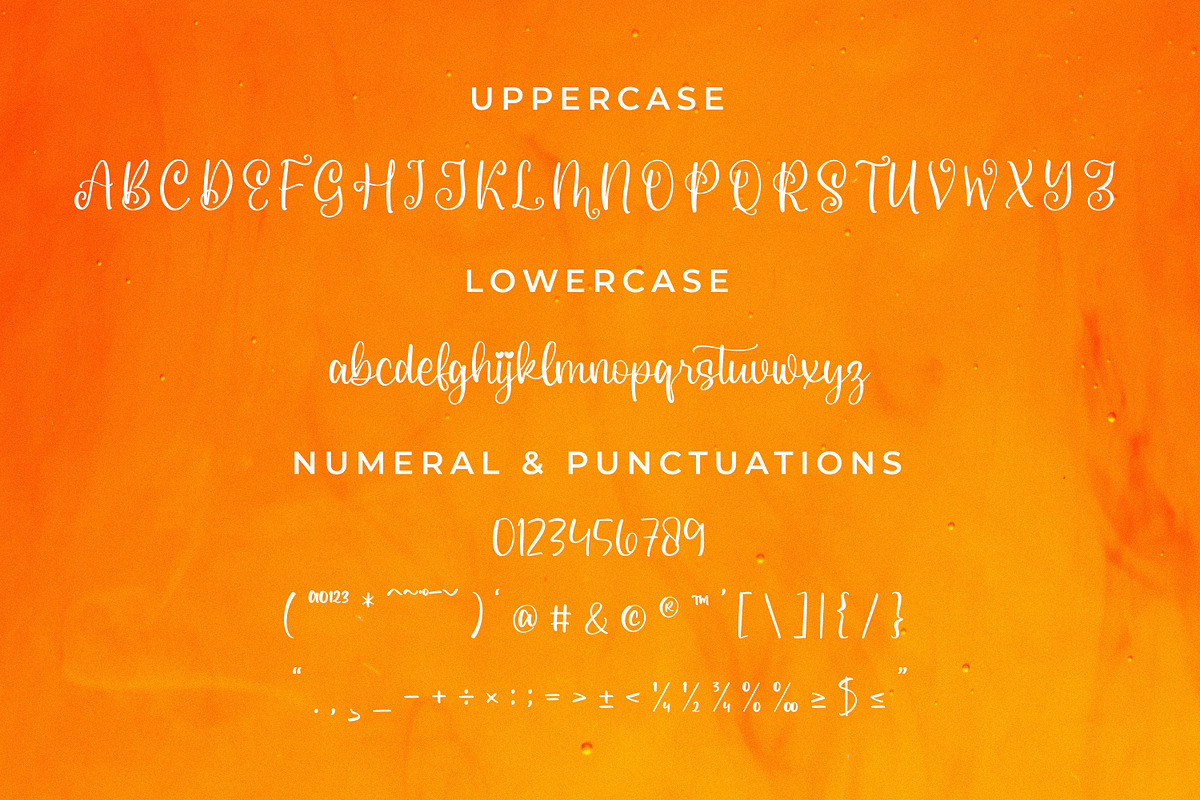 UPPERCASE
ABCDEFGHIJKLMNOPQRSTUVWXYZ
LOWERCASE
abcdefghijklmnopqrstuvwxyz
NUMERAL & PUNCTUATIONS
0123456789
( ao123 * ^~·°–˘ ) ‘ @ # & © ® ™ ’ [ \ ] | { / }
“ . , ¸ _ – + ÷ × : ; = > ± < ¼ ½ ¾ % ‰ ≥ $ ≤ ”